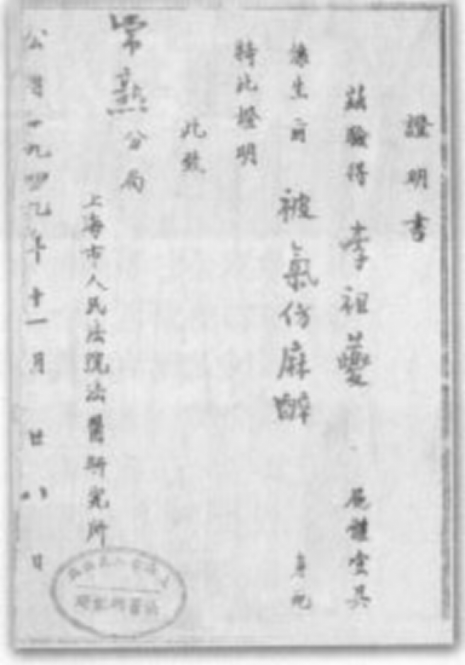 證明書
茲驗得 李祖夔 屍體壹具
生前 被氣仿麻醉 身死
特此證明
此致
常熟分局
上海市人民法院法醫研究所
公 一九四九年十一月廿八日